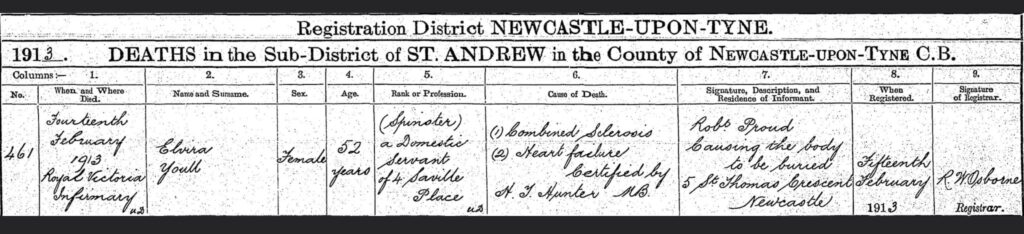 Registration District NEWCASTLE-UPON-TYNE.
1913. DEATHS in the Sub-District of ST. ANDREW in the County of NEWCASTLE-UPON-TYNE C.B.
Columns :— 1. 2. 3. 4. 5. 6. 7. 8. 9.
No. When and Where Died. Name and Surname. Sex. Age. Rank or Profession. Cause of Death. Signature, Description, and Residence of Informant. When Registered. Signature of Registrar.
461
Fourteenth
February
1913
Royal Victoria
Infirmary
u.D
Elvira
Youll
Female
52
years
(Spinster)
a Domestic
Servant
of 4 Saville
Place
u.D
(1) Combined Sclerosis
(2) Heart failure
Certified by
H. J. Hunter MB.
Robt Proud
Causing the body
to be buried
5 St Thomas Crescent
Newcastle
Fifteenth
February
1913
R W Osborne
Registrar.